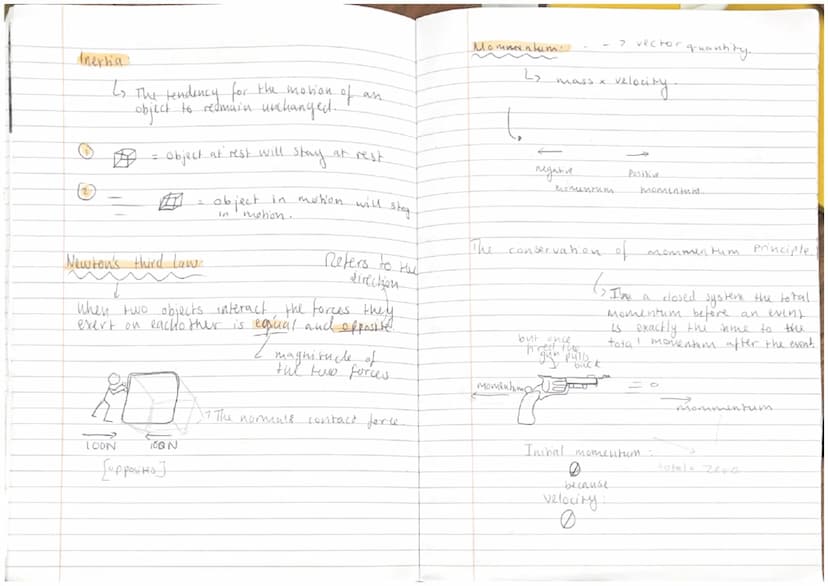 Inertia
↳ The tendency for the motion of an
object to redmain unchanged.
① = object at rest will stay at rest
② = object in motion will stay
in motion.
Newton's third law
Refers to the
direction
When two objects interact the forces they
exert on eachother is equal and opposite
magnitude of
the two forces
The normals contact force
100N 100N
[opposite]
Mommentum: - -> vector quantity.
↳ mass x velocity.
← →
negative positive
momentum momentum.
The conservation of mommentum principle!
↳ a closed system the total
momentum before an event
is exactly the same to the
total momentum after the event.
but once
fired the
gun pulls
back
momentum = 0
mommentum
Initial momentum: total= zero
0
because
velocity:
0